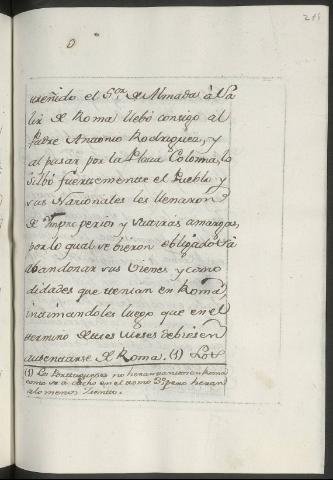 215
ureñido el S.or de Almada à Sa
lir de Roma llebó contigo al
Padre Antonio Rodriguez, y
al pasar por la Plaza Colonna, lo
Silbó fuertemente el Pueblo y
sus Nacionales les llenaron
de Improperios y satiras amargas,
por lo qual se bieron obligados à
abandonar sus Vienes y como
didades que tenian en Roma,
intimandoles luego que en el
termino de tres meses debiesen
ausentarse de Roma. (1) Los
(1) Los Portugueses no heran tantos en Roma
como se à dicho en el tomo 3.o pero heran
a lo menos Treinta.